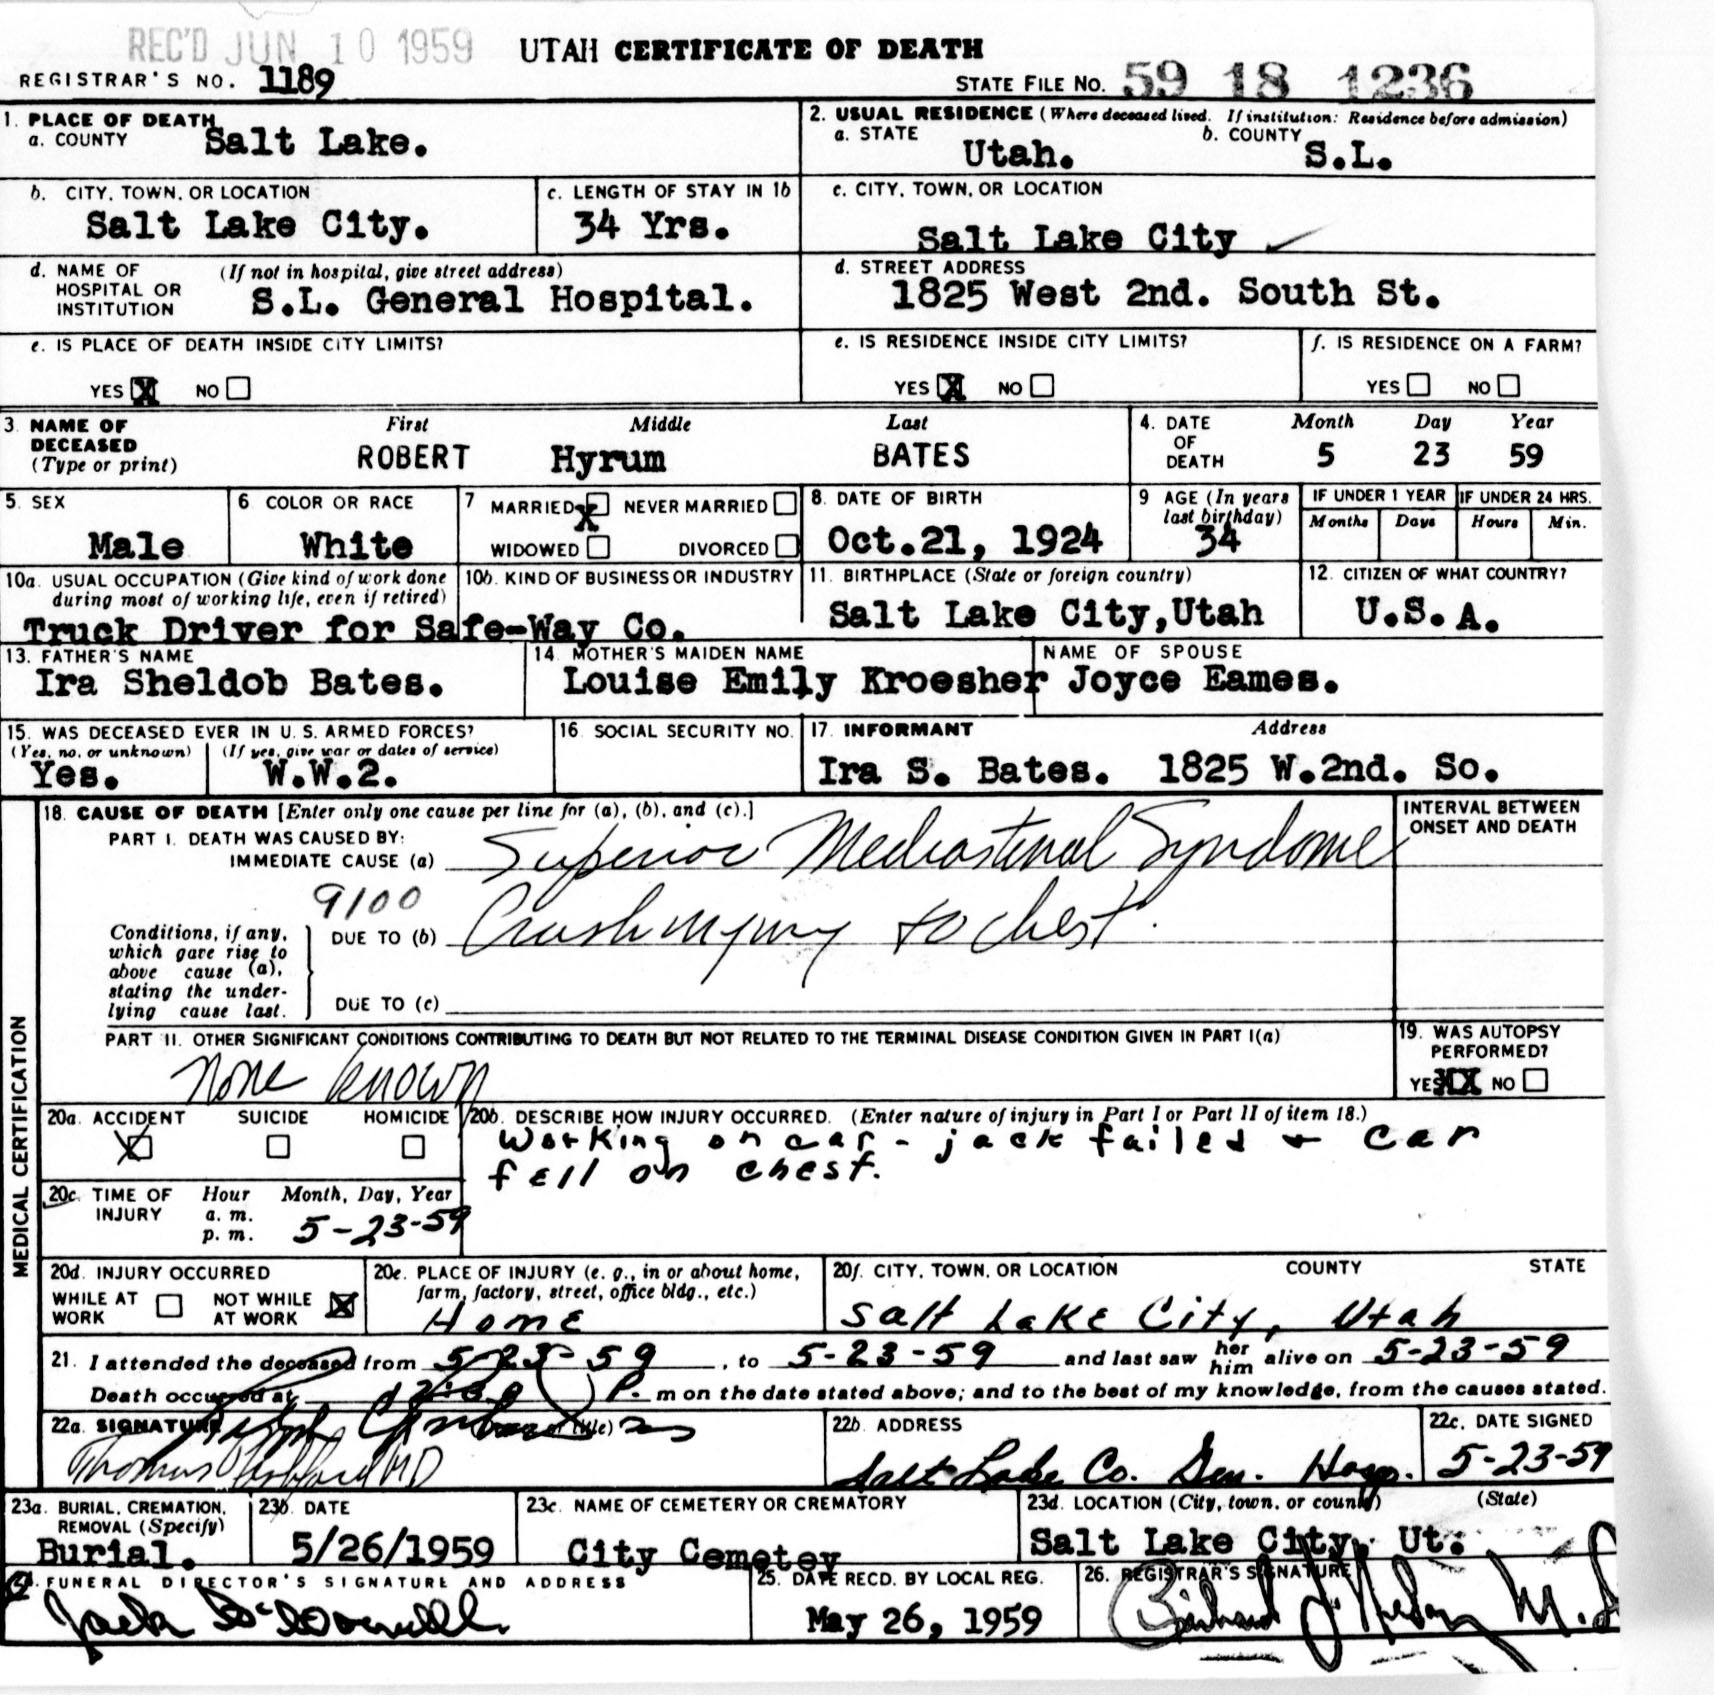 REC'D JUN 10 1959
UTAH CERTIFICATE OF DEATH
REGISTRAR'S NO. 1189
STATE FILE NO. 59 18 1236
1. PLACE OF DEATH
a. COUNTY Salt Lake.
2. USUAL RESIDENCE (Where deceased lived. If institution: Residence before admission)
a. STATE Utah. b. COUNTY S.L.
b. CITY, TOWN, OR LOCATION
Salt Lake City.
c. LENGTH OF STAY IN 1b
34 Yrs.
c. CITY, TOWN, OR LOCATION
Salt Lake City
d. NAME OF HOSPITAL OR INSTITUTION (If not in hospital, give street address)
S.L. General Hospital.
d. STREET ADDRESS
1825 West 2nd. South St.
e. IS PLACE OF DEATH INSIDE CITY LIMITS?
YES X NO
e. IS RESIDENCE INSIDE CITY LIMITS?
YES X NO
f. IS RESIDENCE ON A FARM?
YES NO
3. NAME OF DECEASED (Type or print)
First Middle Last
ROBERT Hyrum BATES
4. DATE OF DEATH
Month Day Year
5 23 59
5. SEX
Male
6. COLOR OR RACE
White
7 MARRIED X NEVER MARRIED
WIDOWED DIVORCED
8. DATE OF BIRTH
Oct.21, 1924
9 AGE (In years last birthday)
34
IF UNDER 1 YEAR IF UNDER 24 HRS.
Months Days Hours Min.
10a. USUAL OCCUPATION (Give kind of work done during most of working life, even if retired)
10b. KIND OF BUSINESS OR INDUSTRY
Truck Driver for Safe-Way Co.
11. BIRTHPLACE (State or foreign country)
Salt Lake City,Utah
12. CITIZEN OF WHAT COUNTRY?
U.S.A.
13. FATHER'S NAME
Ira Sheldob Bates.
14. MOTHER'S MAIDEN NAME
Louise Emily Kroesher
NAME OF SPOUSE
Joyce Eames.
15. WAS DECEASED EVER IN U. S. ARMED FORCES?
(Yes, no, or unknown) (If yes, give war or dates of service)
Yes. W.W.2.
16. SOCIAL SECURITY NO.
17. INFORMANT Address
Ira S. Bates. 1825 W.2nd. So.
MEDICAL CERTIFICATION
18. CAUSE OF DEATH [Enter only one cause per line for (a), (b), and (c).]
PART I. DEATH WAS CAUSED BY:
IMMEDIATE CAUSE (a) Superior Mediastinal Syndome
INTERVAL BETWEEN ONSET AND DEATH
9100
Conditions, if any, which gave rise to above cause (a), stating the underlying cause last.
DUE TO (b) Crush injury to chest.
DUE TO (c)
PART II. OTHER SIGNIFICANT CONDITIONS CONTRIBUTING TO DEATH BUT NOT RELATED TO THE TERMINAL DISEASE CONDITION GIVEN IN PART I(a)
None known
19. WAS AUTOPSY PERFORMED?
YES XX NO
20a. ACCIDENT SUICIDE HOMICIDE
X
20b. DESCRIBE HOW INJURY OCCURRED. (Enter nature of injury in Part I or Part II of item 18.)
Working on car - jack failed + car
fell on chest.
20c. TIME OF INJURY
Hour Month, Day, Year
a. m.
p. m. 5-23-59
20d. INJURY OCCURRED
WHILE AT WORK NOT WHILE AT WORK X
20e. PLACE OF INJURY (e. g., in or about home, farm, factory, street, office bldg., etc.)
Home
20f. CITY, TOWN, OR LOCATION COUNTY STATE
Salt Lake City, Utah
21. I attended the deceased from 5-23-59, to 5-23-59 and last saw her him alive on 5-23-59
Death occurred at P. m on the date stated above; and to the best of my knowledge, from the causes stated.
22a. SIGNATURE
Thomas MD
22b. ADDRESS
Salt Lake Co. Gen. Hosp.
22c. DATE SIGNED
5-23-59
23a. BURIAL, CREMATION, REMOVAL (Specify)
Burial.
23b. DATE
5/26/1959
23c. NAME OF CEMETERY OR CREMATORY
City Cemetey
23d. LOCATION (City, town, or county) (State)
Salt Lake City, Ut.
24. FUNERAL DIRECTOR'S SIGNATURE AND ADDRESS
Jack
25. DATE RECD. BY LOCAL REG.
May 26, 1959
26. REGISTRAR'S SIGNATURE